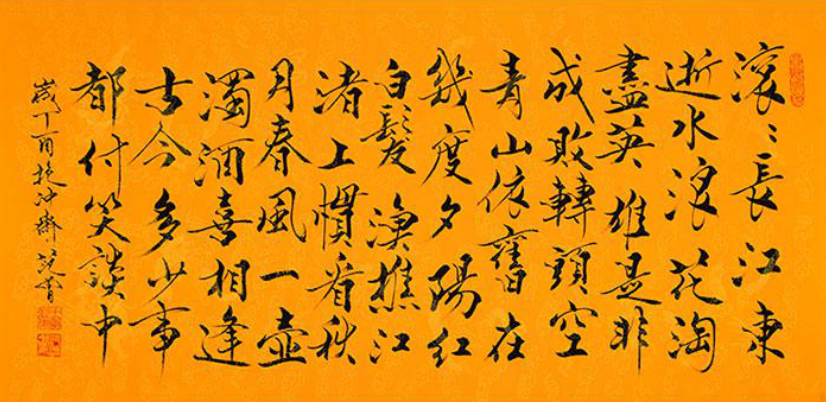 滾〻長江東
逝水浪花淘
盡英雄是非
成敗轉頭空
青山依舊在
幾度夕陽紅
白髮漁樵江
渚上慣看秋
月春風一壺
濁酒喜相逢
古今多少事
都付笑談中
歲丁酉抱冲齋范曾